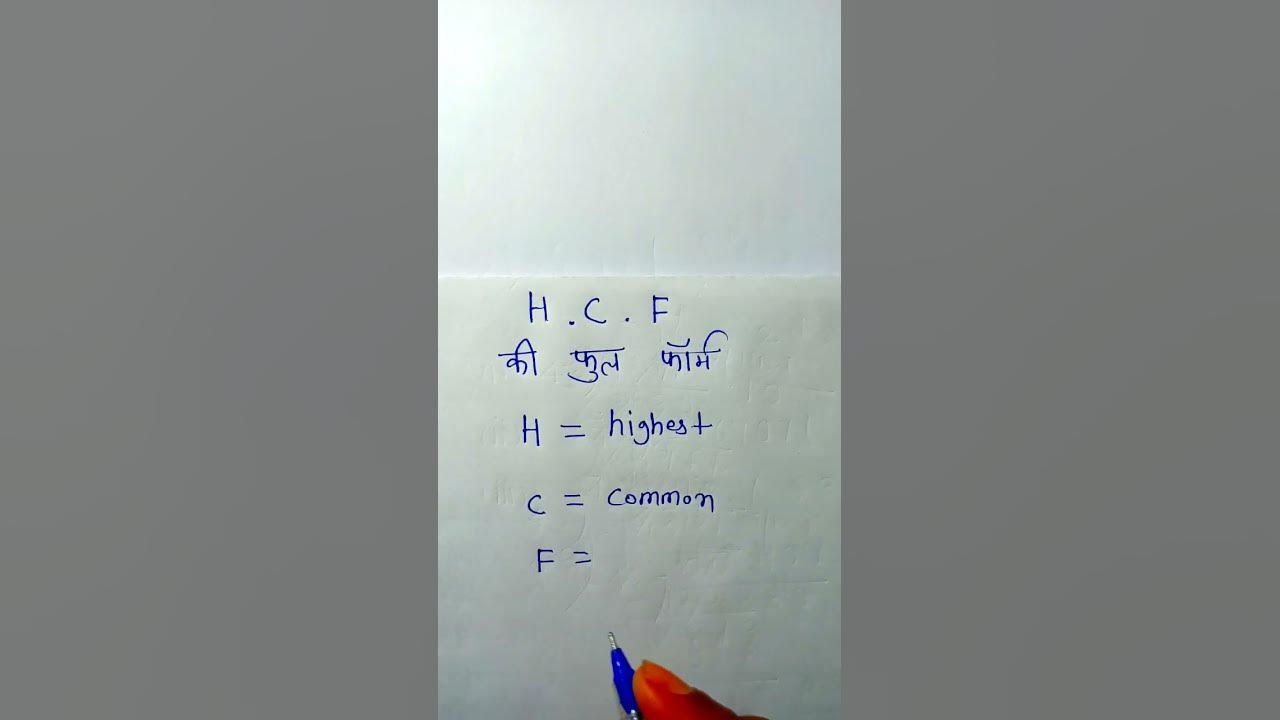 H . C . F
की फुल फॉर्म
H = highest
C = common
F =